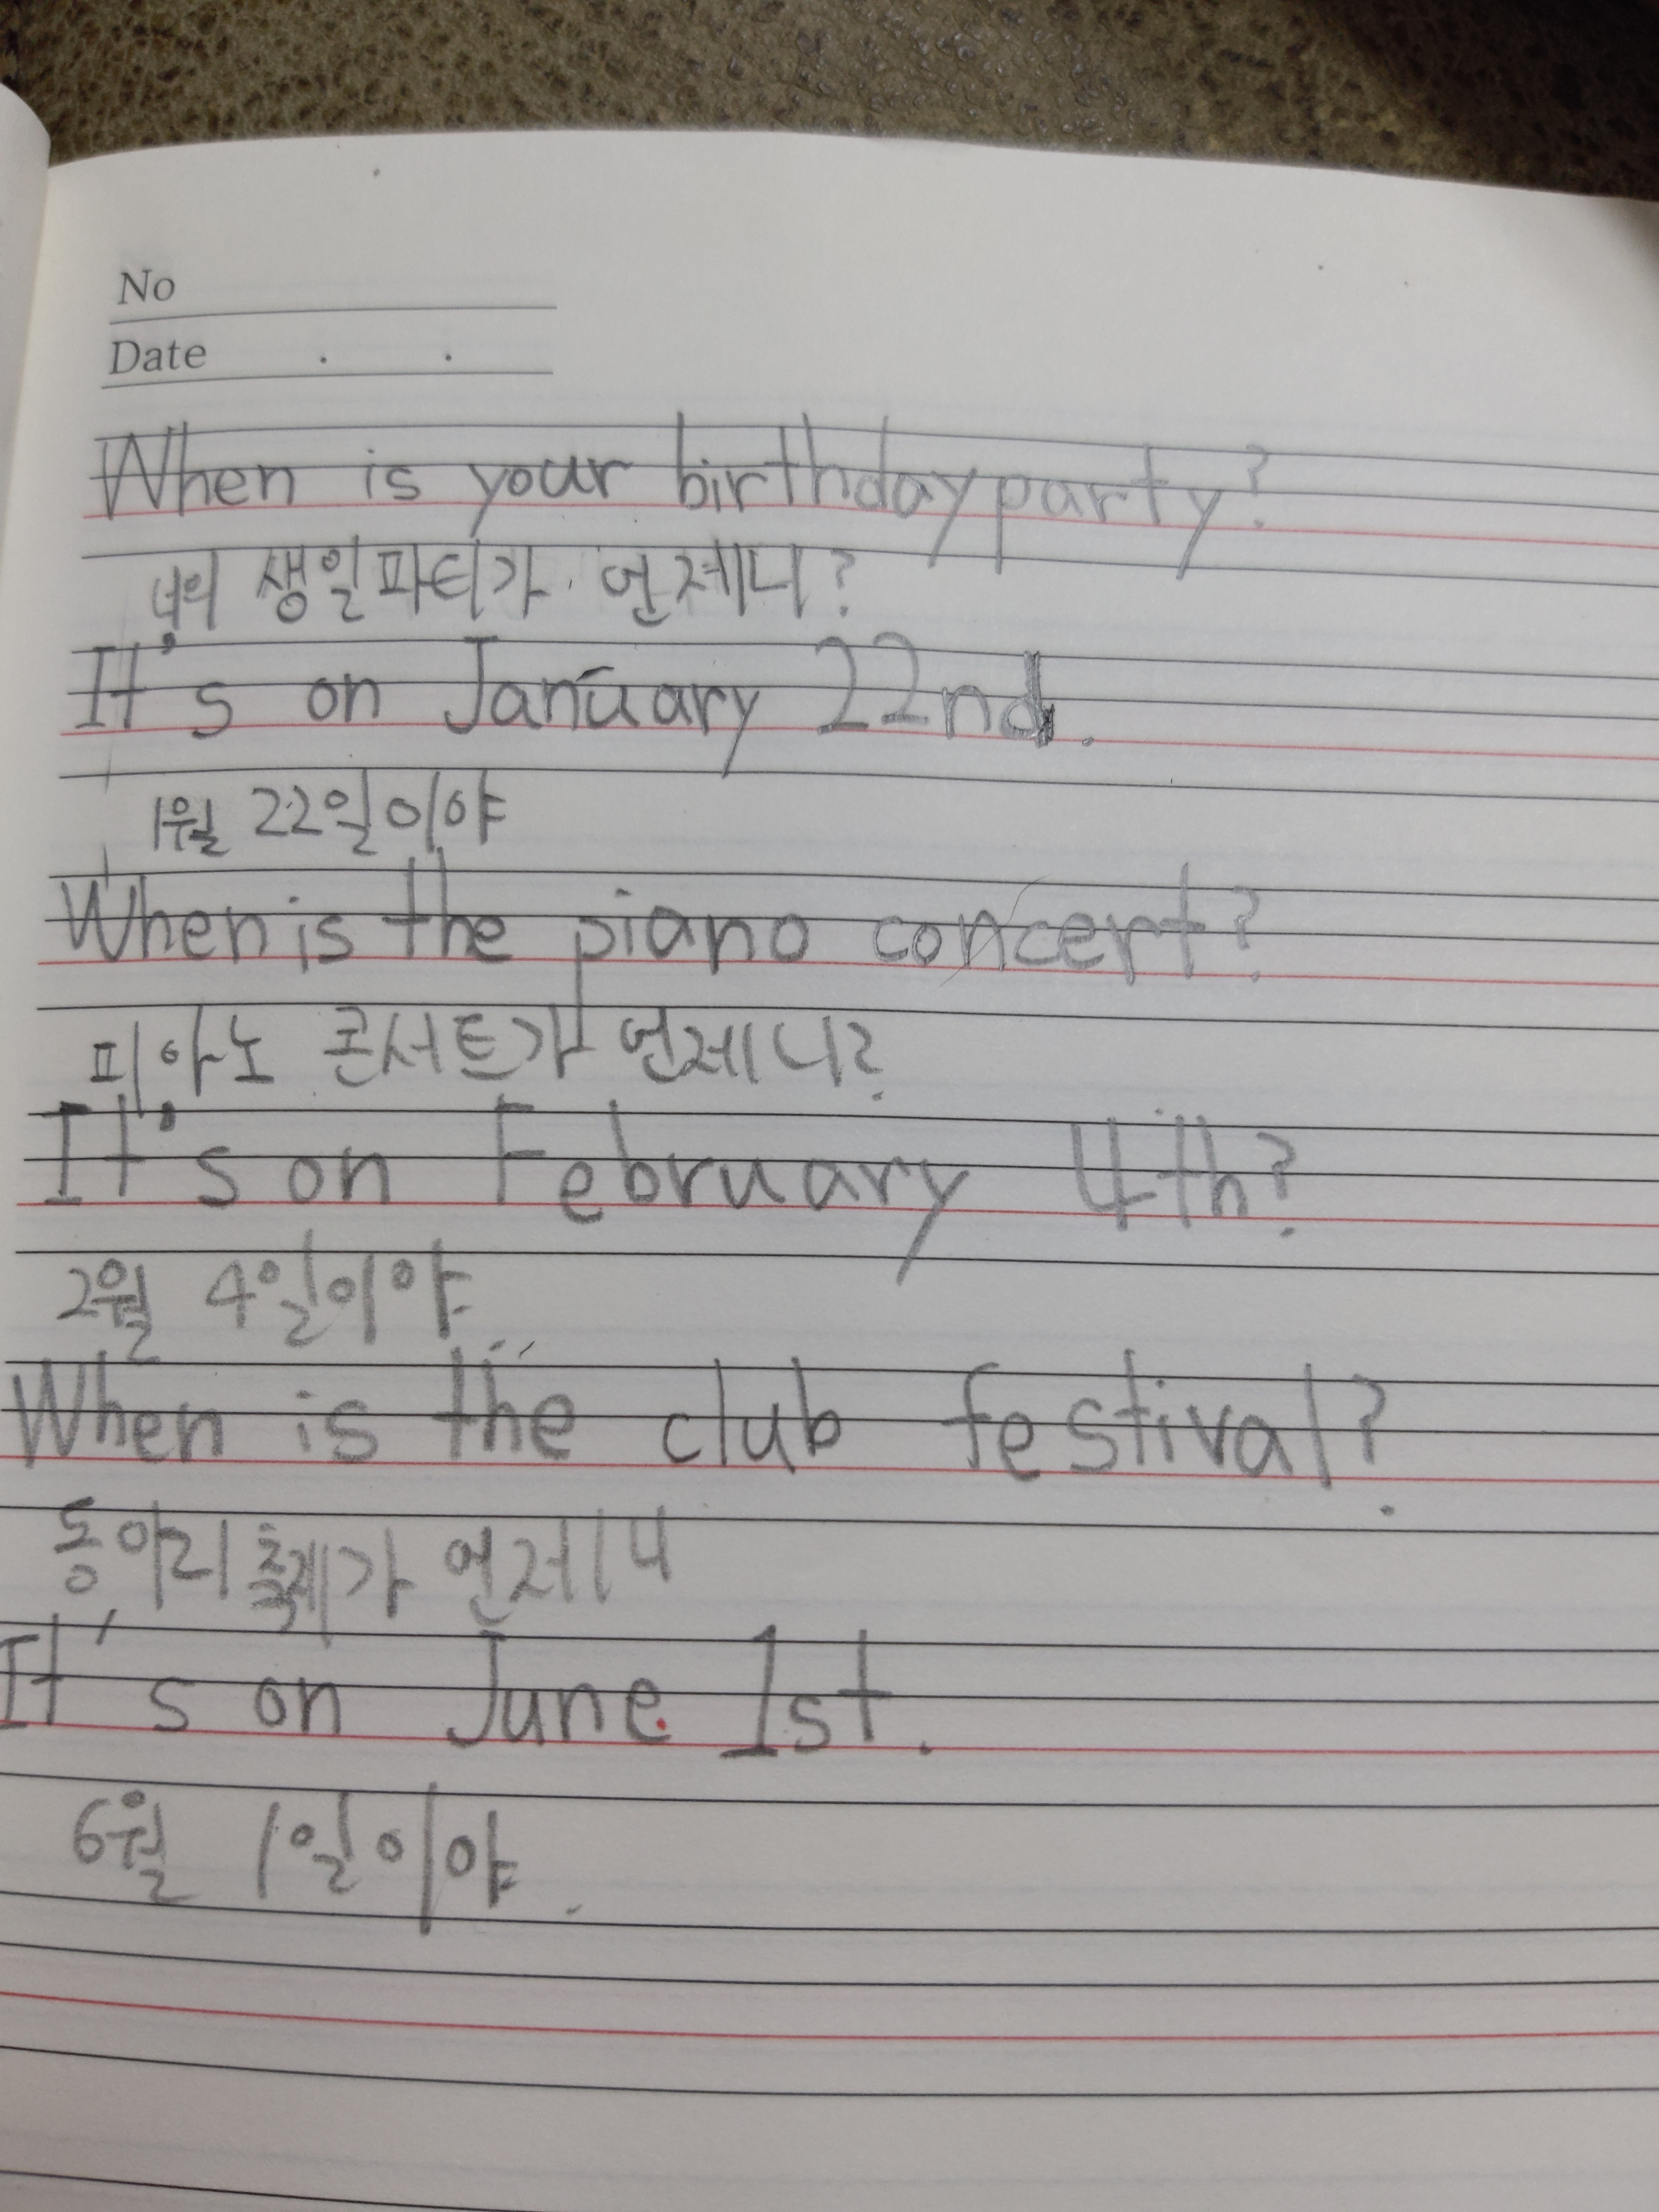 No
Date . .
When is your birthday party?
너의 생일파티가 언제니?
It's on January 22nd.
1월 22일이야
When is the piano concert?
피아노 콘서트가 언제니?
It's on February 4th?
2월 4일이야.
When is the club festival?
동아리 축제가 언제니
It's on June 1st.
6월 1일이야.